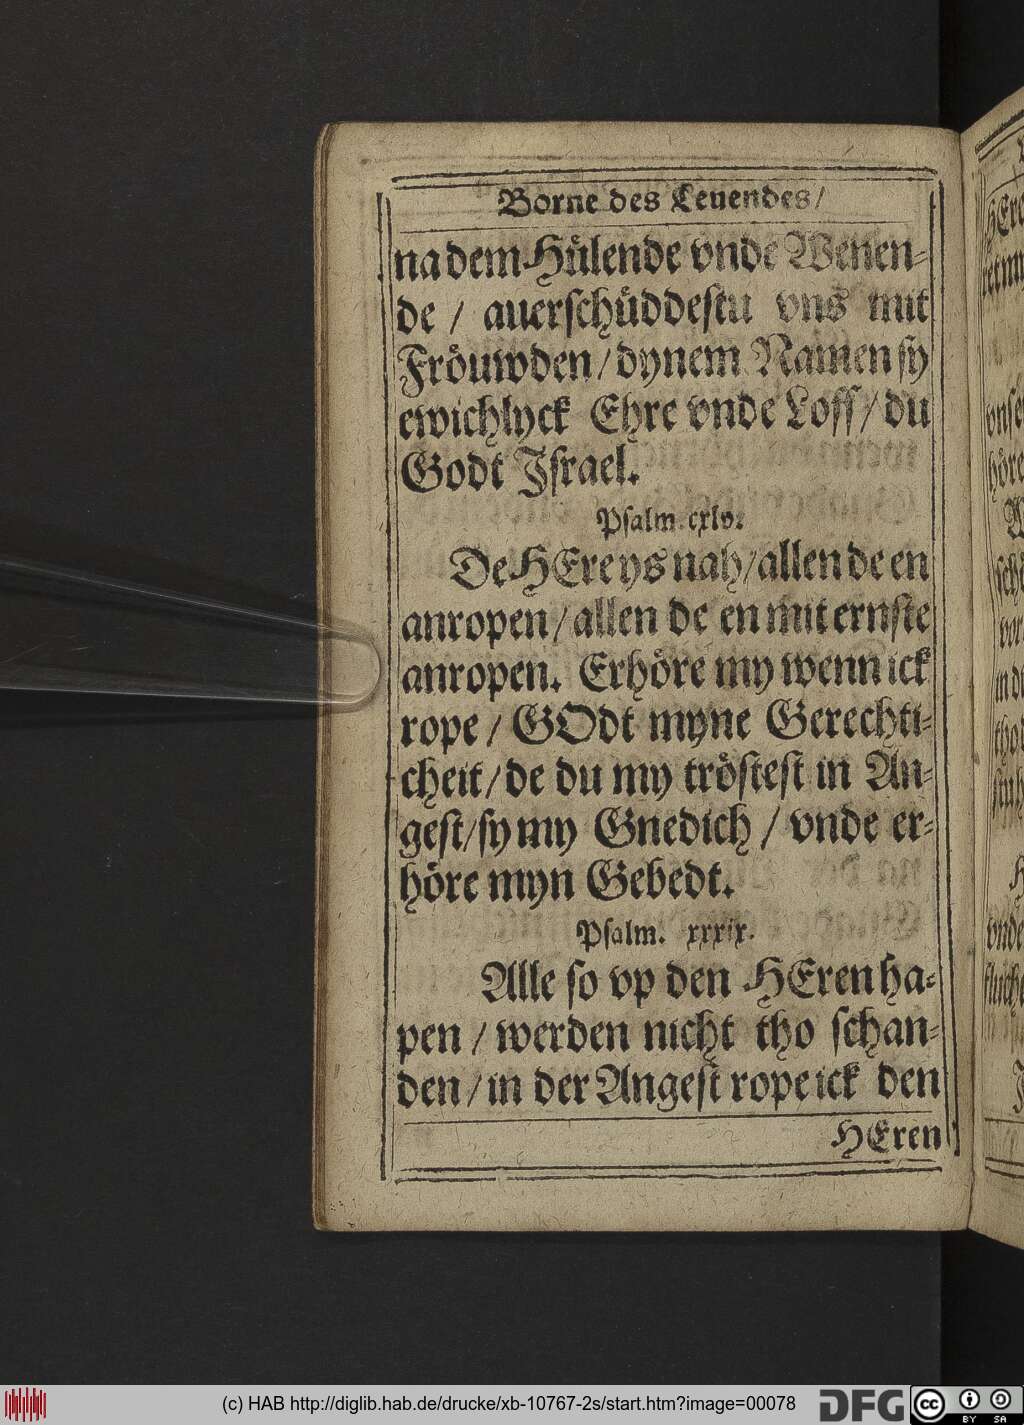 Borne des Leuendes/
na dem Hülende vnde Wenen-
de / auerſchüddeſtu vns mit
Fröuwden/ dynem Namen ſy
ewichlyck Ehre vnde Loff/ du
Godt Jſrael.
Pſalm. cxlv.
De HEre ys nah/allen de en
anropen/ allen de en mit ernſte
anropen. Erhöre my wenn ick
rope / GOdt myne Gerechti-
cheit/ de du my tröſteſt in An-
geſt/ſy my Gnedich / vnde er-
höre myn Gebedt.
Pſalm. xxxix.
Alle ſo vp den HEren ha-
pen / werden nicht tho ſchan-
den / in der Angeſt rope ick den
HEren
(c) HAB http://diglib.hab.de/drucke/xb-10767-2s/start.htm?image=00078
DFG
cc BY SA